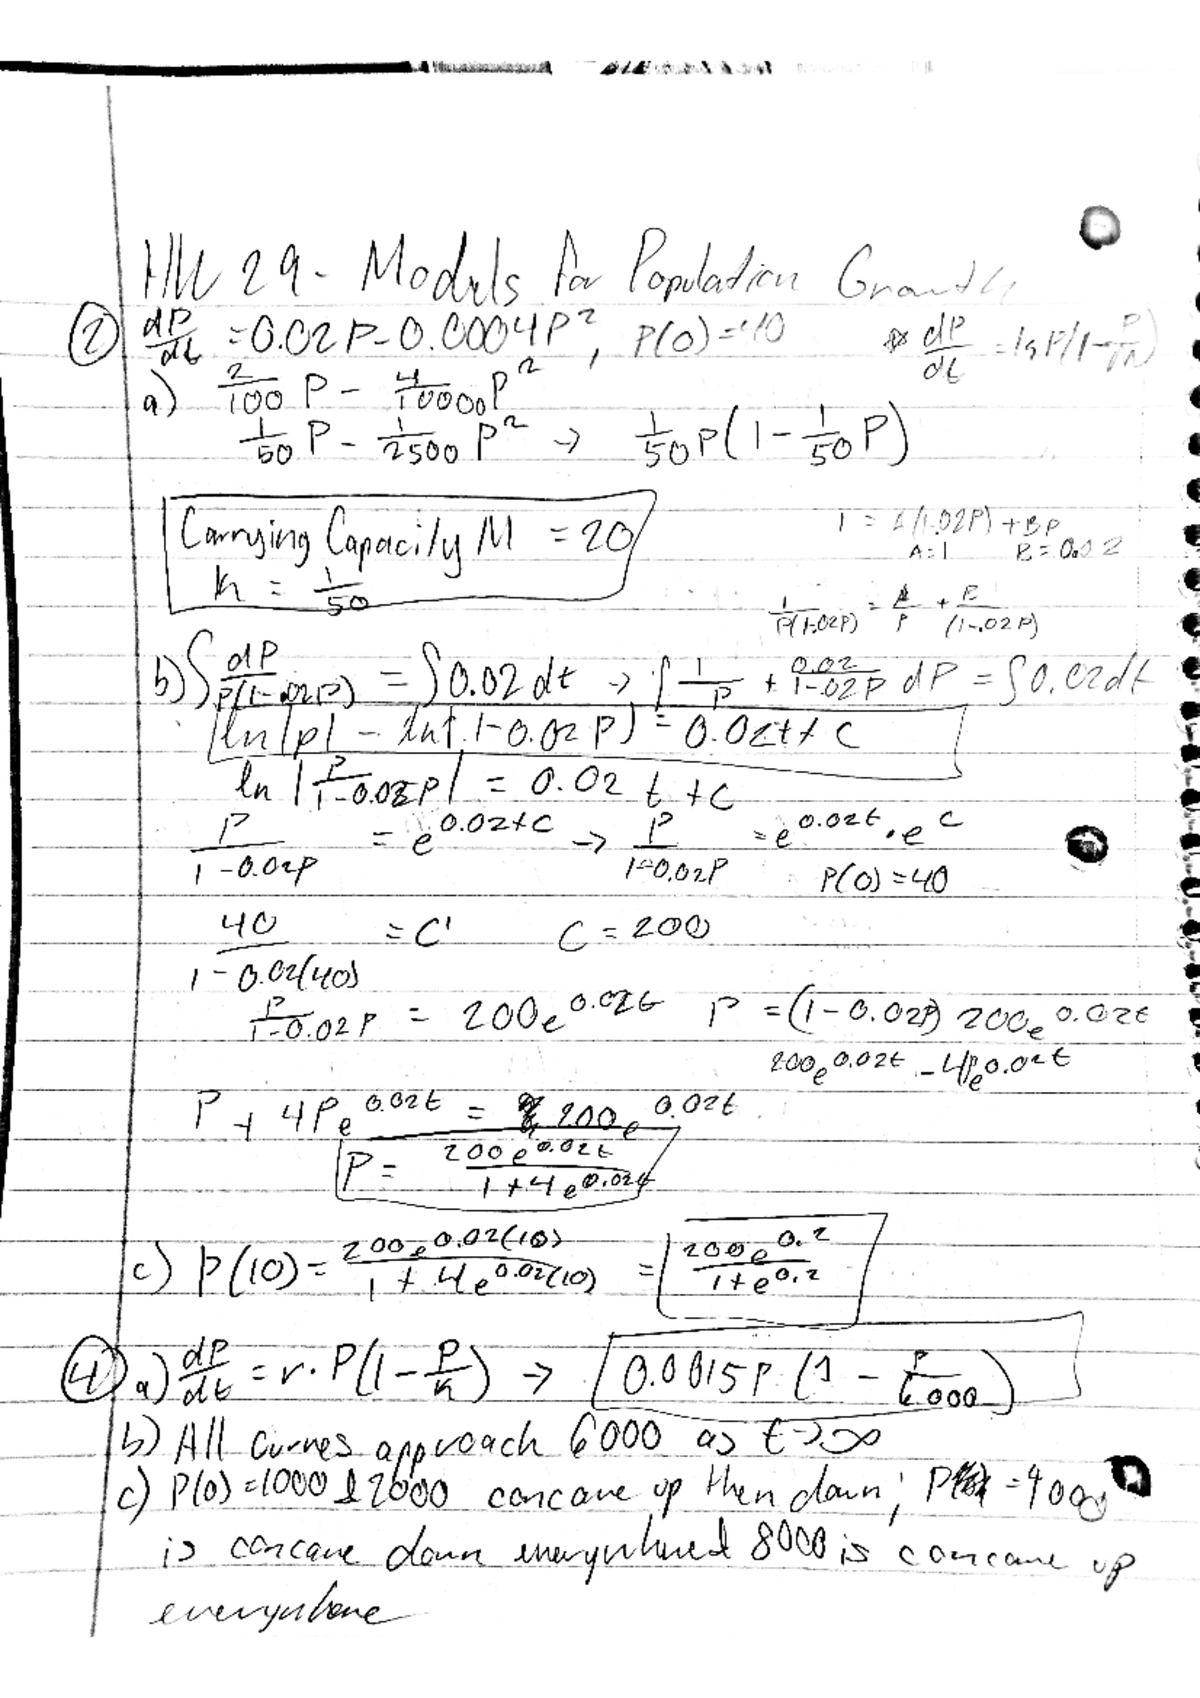 HW 29 - Models for Population Growth
② dP/dt = 0.02P - 0.0004P², P(0) = 40 * dP/dt = kP(1 - P/M)
a) 2/100 P - 4/10000 P²
1/50 P - 1/2500 P² → 1/50 P(1 - 1/50 P)
Carrying Capacity M = 20
k = 1/50
1 = A(1-.02P) + BP
A=1 B=0.02
1/P(1-.02P) = A/P + B/(1-.02P)
b) ∫ dP/P(1-.02P) = ∫0.02 dt → ∫ 1/P + 0.02/1-.02P dP = ∫0.02dt
ln|P| - ln|1-0.02P| = 0.02t + C
ln |P/1-0.02P| = 0.02 t + C
P/1-0.02P = e^0.02+C → P/1-0.02P = e^0.02t · e^C
P(0) = 40
40/1-0.02(40) = C' C = 200
P/1-0.02P = 200e^0.02t P = (1-0.02P) 200e^0.02t
200e^0.02t - 4Pe^0.02t
P + 4Pe^0.02t = 200e^0.02t
P = 200e^0.02t/1+4e^0.02t
c) P(10) = 200e^0.02(10)/1+4e^0.02(10) = 200e^0.2/1+e^0.2
④ a) dP/dt = r·P(1-P/K) → 0.0015P (1 - P/6000)
b) All curves approach 6000 as t→∞
c) P(0)=1000 & 2000 concave up then down; P = 4000
is concave down everywhere & 8000 is concave up
everywhere